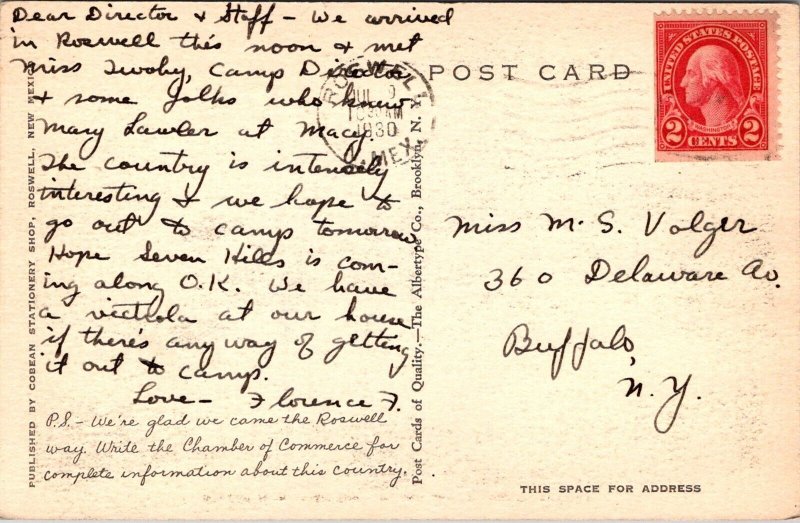 Dear Director & Staff - We arrived
in Roswell this noon & met
Miss Twohy, Camp Director
& some folks who know
Mary Lawler at Macy.
The country is intensely
interesting & we hope to
go out to camp tomorrow
Hope Seven Hills is com-
ing along O.K. We have
a victrola at our house
if there's any way of getting
it out to camp.
Love - Florence F.
P.S. - We're glad we came the Roswell
way. Write the Chamber of Commerce for
complete information about this country.
PUBLISHED BY COBEAN STATIONERY SHOP, ROSWELL, NEW MEXICO
Post Cards of Quality.—The Albertype Co., Brooklyn, N. Y.
ROSWELL
JUL 9
AM
1930
N. MEX.
POST CARD
UNITED STATES POSTAGE
WASHINGTON
2 CENTS 2
Miss M. S. Volger
360 Delaware Av.
Buffalo,
N.Y.
THIS SPACE FOR ADDRESS